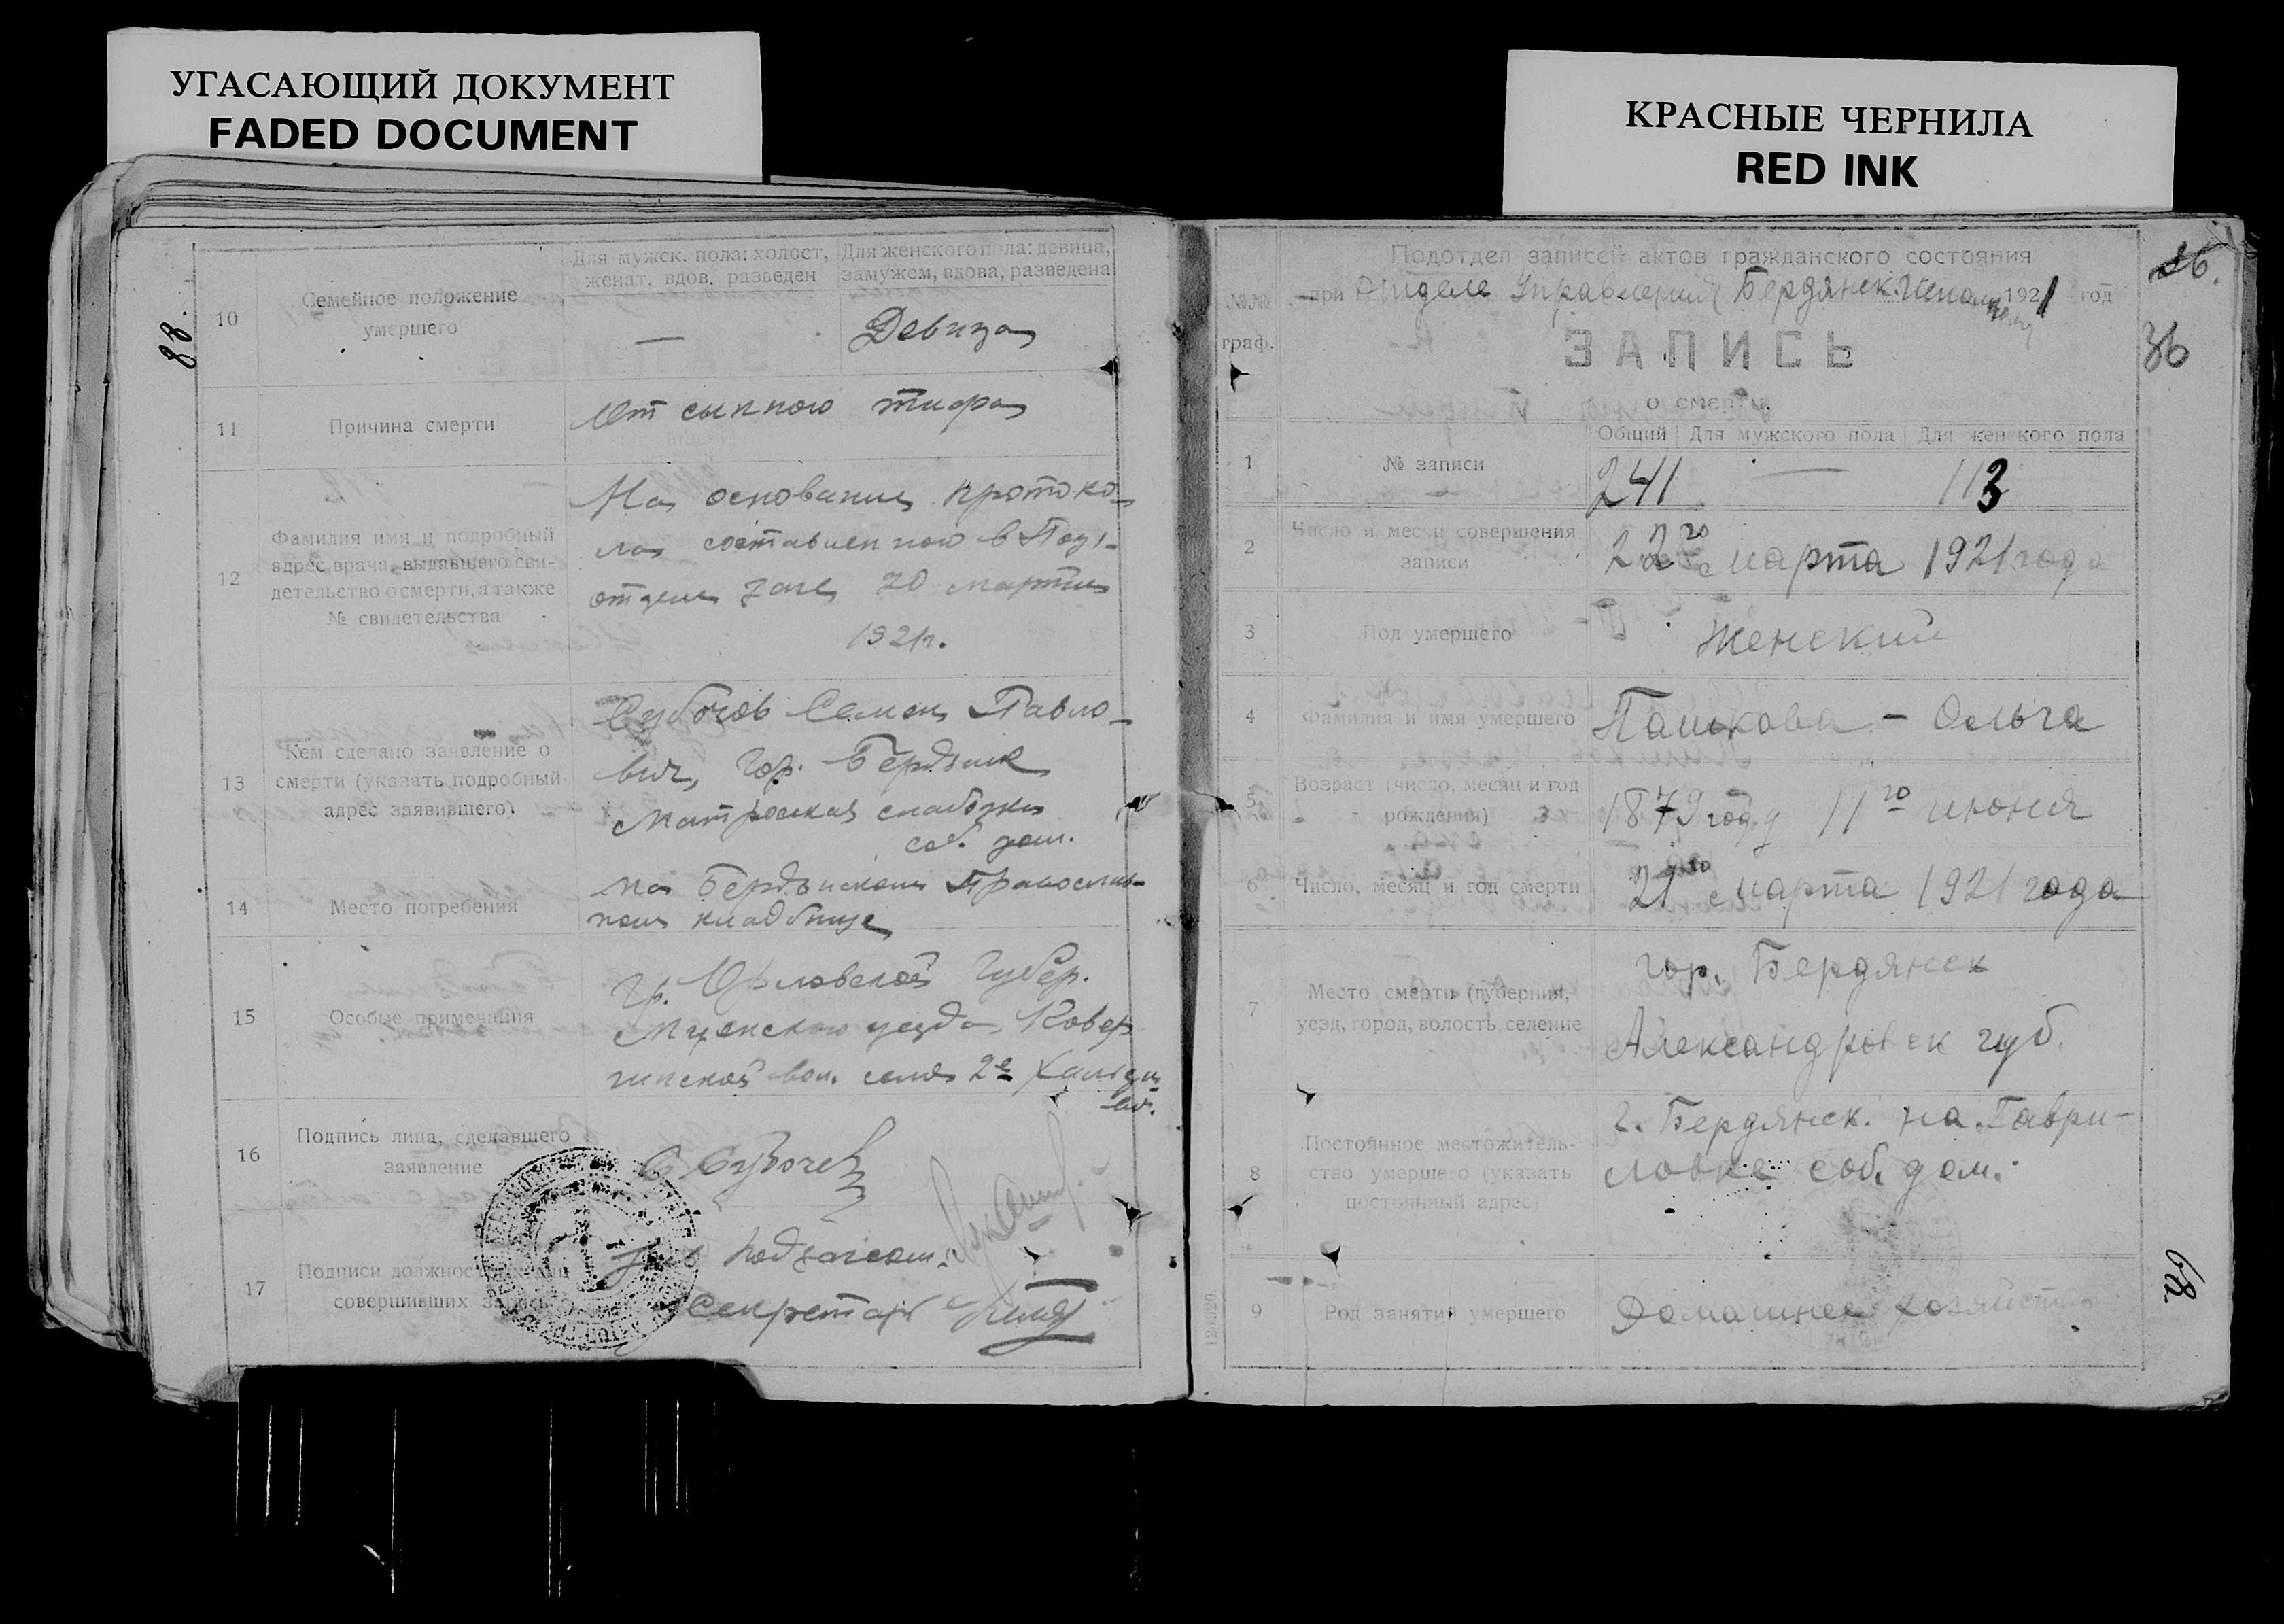 УГАСАЮЩИЙ ДОКУМЕНТ
FADED DOCUMENT
КРАСНЫЕ ЧЕРНИЛА
RED INK
88.
10
Семейное положение
умершего
Для мужск. пола: холост,
женат, вдов, разведен
Для женского пола: девица,
замужем, вдова, разведена
—
Девица
11
Причина смерти
От сыпного тифа
12
Фамилия имя и подробный
адрес врача, выдавшего сви-
детельство о смерти, а также
№ свидетельства
На основании протоко-
ла составленного в Под-
отделе загс 20 марта
1921 г.
13
Кем сделано заявление о
смерти (указать подробный
адрес заявившего).
Субочев Семен Павло-
вич, гор. Бердянск
Матросская слободка
соб. дом.
14
Место погребения
на Бердянском Православ-
ном кладбище
15
Особые примечания
Гр. Орловской Губер.
Мценского уезда
вол. села 2е
16
Подпись лица, сделавшего
заявление
С Субочев
17
Подписи должностных лиц
совершивших запись
Зав Подзагсом
Секретарь
36.
36
№№
граф.
Подотдел записей актов гражданского состояния
при Отделе Управления Бердянск. 1921 год
ЗАПИСЬ
о смерти.
1
№ записи
Общий
Для мужского пола
Для женского пола
241
—
113
2
Число и месяц совершения
записи
22го марта 1921 года
3
Пол умершего
Женский
4
Фамилия и имя умершего
Пашкова - Ольга
5
Возраст (число, месяц и год
рождения)
1879 году 11го июня
6
Число, месяц и год смерти
21го марта 1921 года
7
Место смерти (губерния,
уезд, город, волость, селение
гор. Бердянск
Александровск губ.
8
Постоянное местожитель-
ство умершего (указать
постоянный адрес)
г. Бердянск. на Гаври-
ловке соб. дом.
9
Род занятий умершего
Домашнее хозяйство
68.